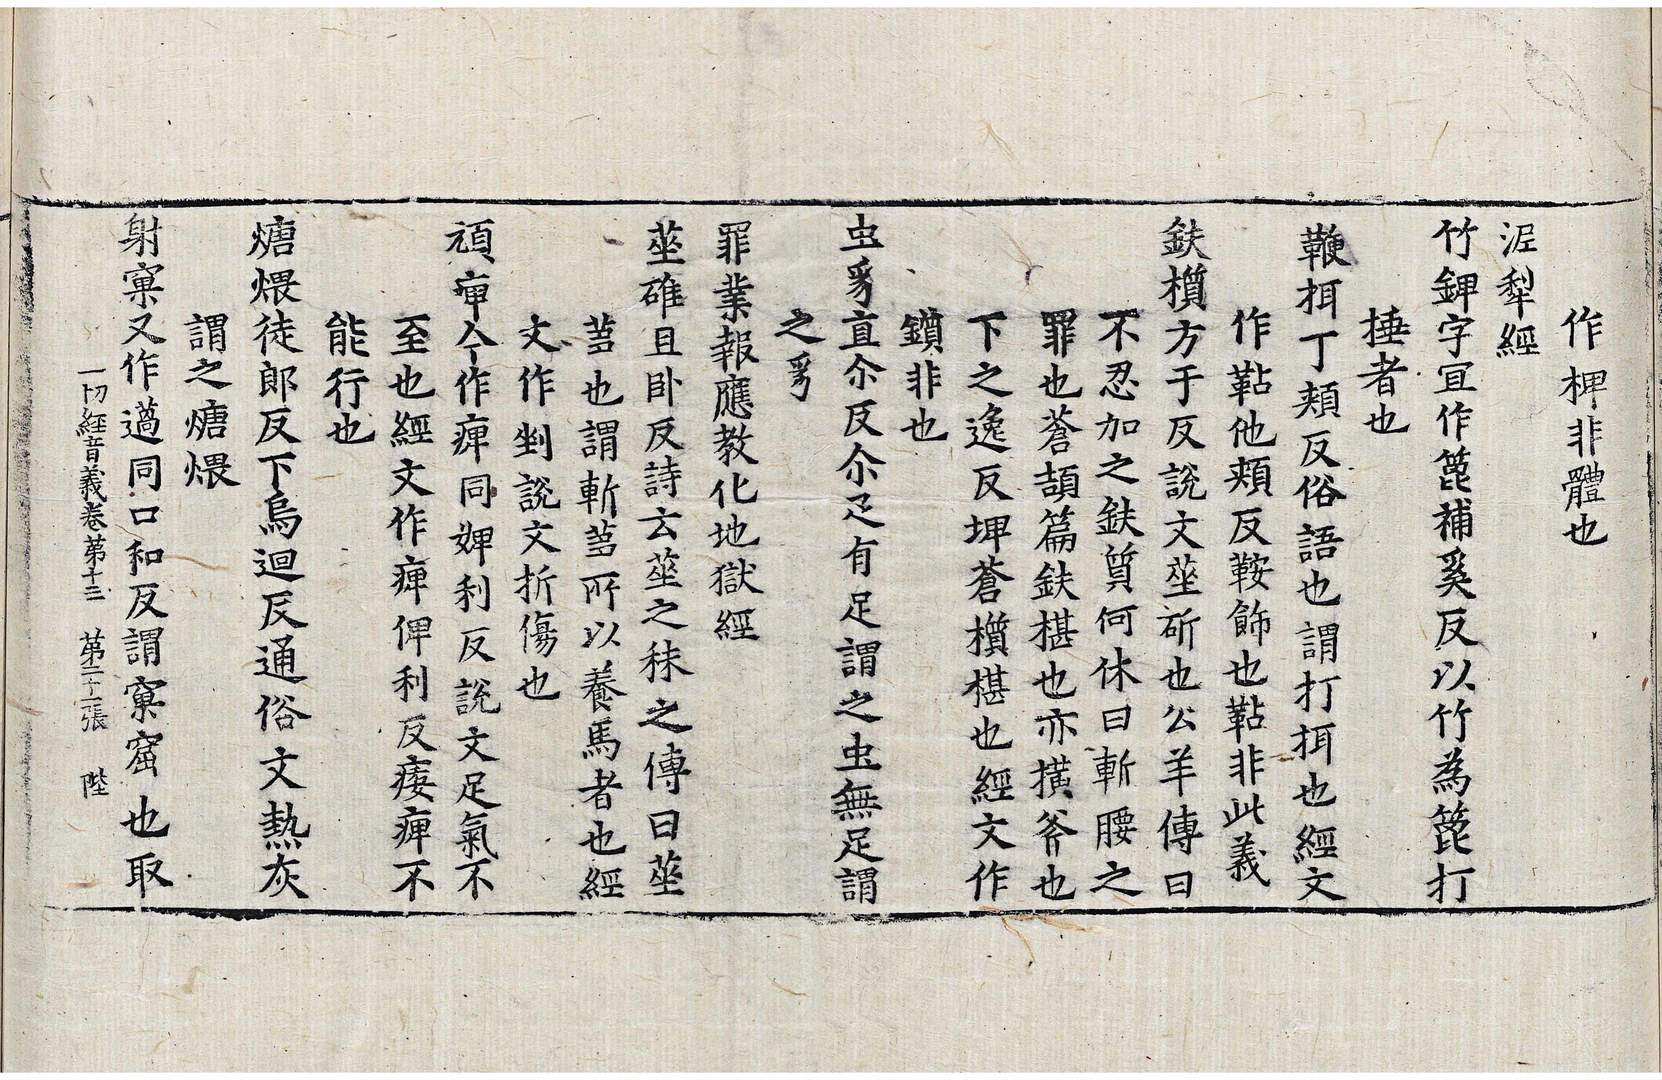 作椑非體也
泥犁經
竹錍字冝作箆補奚反以竹為箆打
捶者也
鞭挕丁頰反俗語也謂打挕也經文
作鞊他頰反鞍飾也鞊非此義
鈇櫍方于反說文莝斫也公羊傳曰
不忍加之鈇質何休曰斬腰之
罪也蒼頡篇鈇椹也亦橫斧也
下之逸反埤蒼櫍椹也經文作
鑕非也
虫豸直尒反尒疋有足謂之虫無足謂
之豸
罪業報應教化地獄經
莝碓且卧反詩云莝之秣之傳曰莝
蒭也謂斬蒭所以養馬者也經
文作剉說文折傷也
頑痹今作痺同婢利反說文足氣不
至也經文作痺俾利反痿痺不
能行也
煻煨徒郎反下烏迴反通俗文熱灰
謂之煻煨
射窠又作薖同口和反謂窠窟也取
一切經音義卷第十三　第二十二張　陛